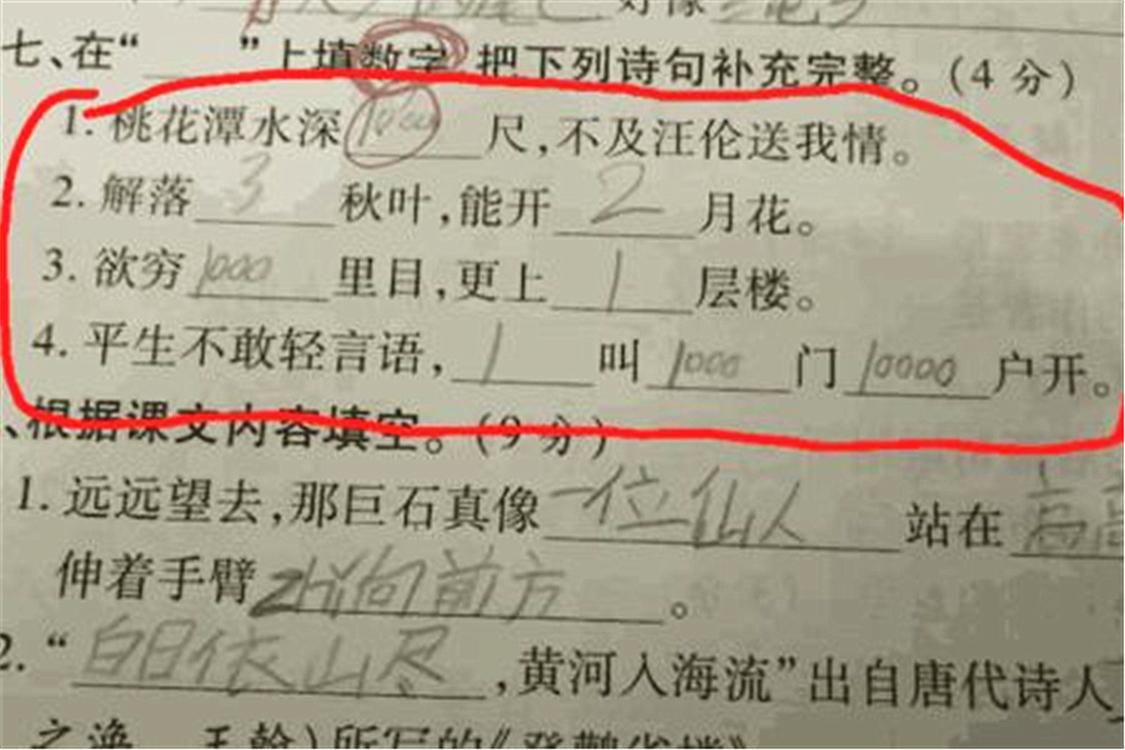 好像
七、在“____”上填数字,把下列诗句补充完整。(4 分)
1. 桃花潭水深1000尺,不及汪伦送我情。
2. 解落3秋叶,能开2月花。
3. 欲穷1000里目,更上1层楼。
4. 平生不敢轻言语,1叫1000门10000户开。
、根据课文内容填空。(9 分)
1. 远远望去,那巨石真像一位仙人站在高高
伸着手臂zhǐ向前方。
2. “白日依山尽,黄河入海流”出自唐代诗人
之涣 王翰)所写的《登鹳雀楼》